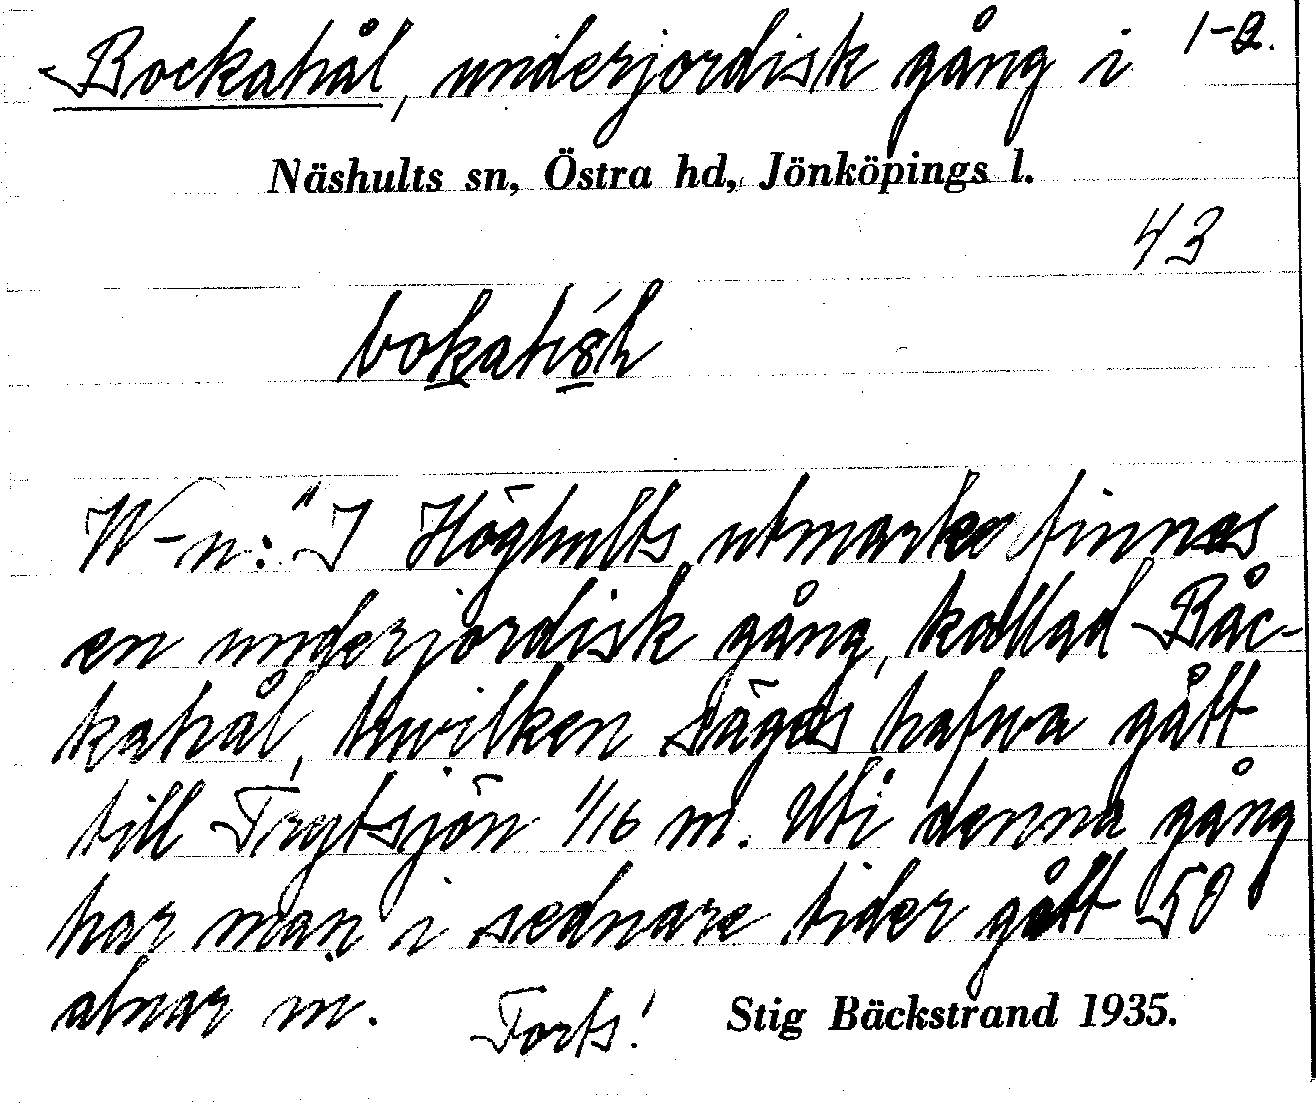 Bockahål, underjordisk gång i 1-2.
Näshults sn, Östra hd, Jönköpings l.
43
W-n: "I Höghults utmarker finnes
en underjordisk gång, kallad Båc-
kahål, hwilken säges hafwa gått
till Frytsjön 1/16 m. Uti denna gång
har man i sednare tider gått 50
alnar in. Forts! Stig Bäckstrand 1935.